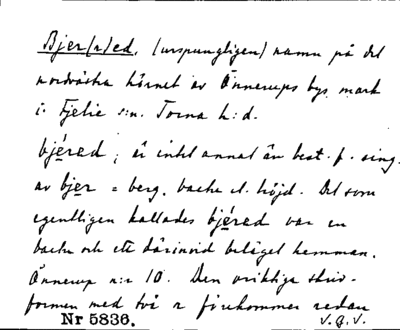 Bjer(r)ed, (urspungligen) namn på det
nordvästra hörnet av Önnerups bys mark
i Fjelie s:n. Torna h:d.
bjéred, är intet annat än best. f. sing.
av bjer = berg, backe el. höjd. Det som
egentligen kallades bjéred var en
backe och ett därinvid beläget hemman,
Önnerup n:r 10. Den oriktiga skriv-
formen med två r förekommer redan
Nr 5836. V.G.V.